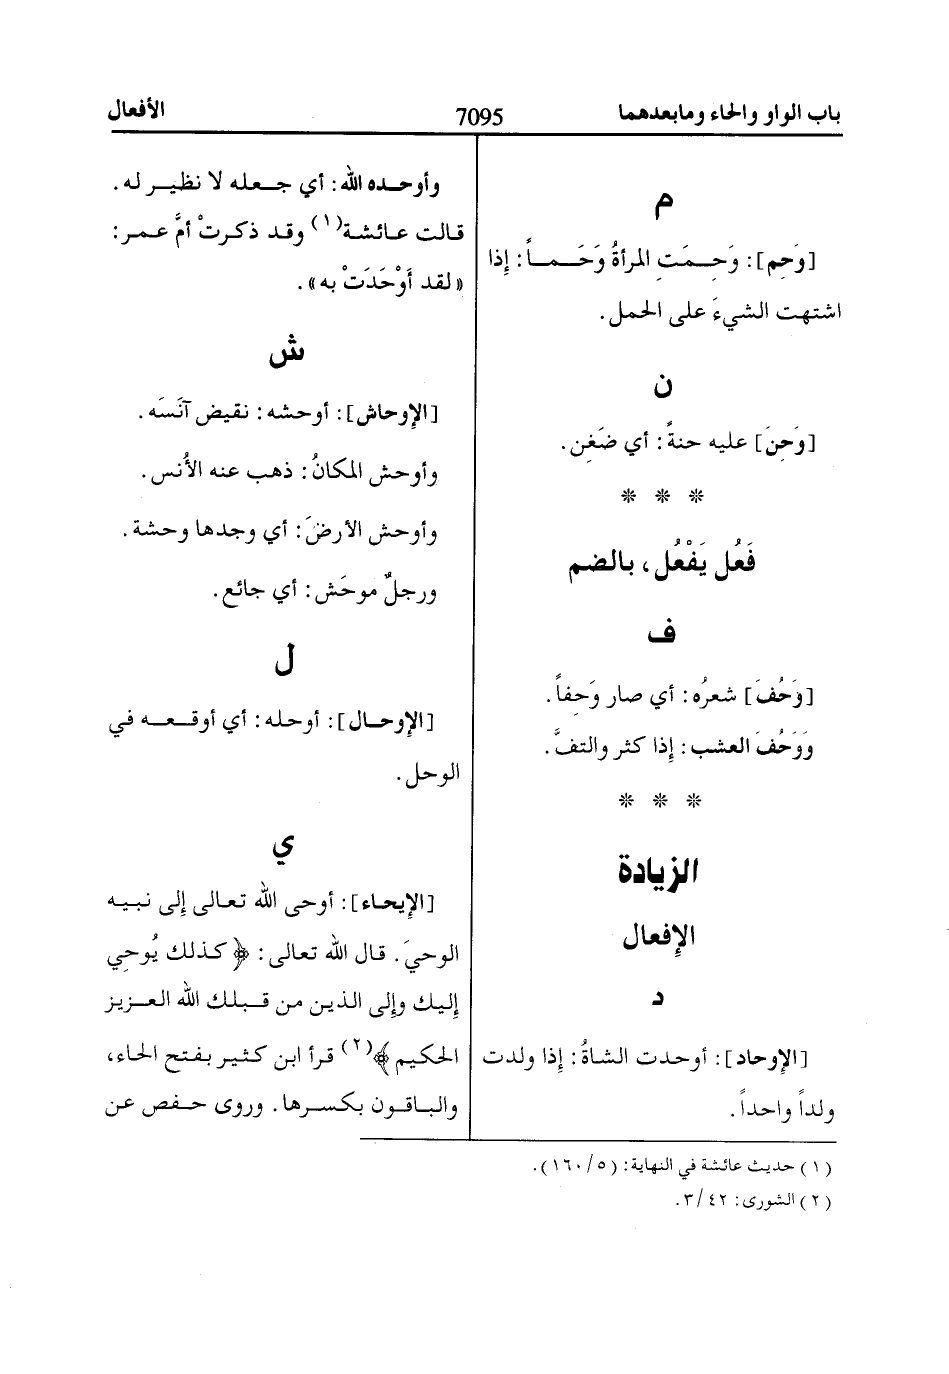 باب الواو والحاء ومابعدهما
7095
الأفعال
م
[وَحِم]: وَحِـمَتِ المرأةُ وَحَـمـاً: إذا
اشتهت الشيءَ على الحمل.
ن
[وَحِنَ] عليه حنةً: أي ضَغِن.
* * *
فَعُل يَفْعُل، بالضم
ف
[وَحُفَ] شعرُه: أي صار وَحِفاً.
وَوَحُفَ العشب: إذا كثر والتفَّ.
* * *
الزيادة
الإفعال
د
[الإوحاد]: أوحدت الشاةُ: إذا ولدت
ولداً واحداً.
وأوحـده الله: أي جـعله لا نظيـر له.
قالت عائشة(١) وقد ذكرتْ أمَّ عمر:
«لقد أَوْحَدَتْ به».
ش
[الإوحاش]: أوحشه: نقيض آنَسَه.
وأوحش المكانُ: ذهب عنه الأُنس.
وأوحش الأرضَ: أي وجدها وحشة.
ورجلٌ موحَش: أي جائع.
ل
[الإوحال]: أوحله: أي أوقـعـه في
الوحل.
ي
[الإيحاء]: أوحى الله تعالى إلى نبيه
الوحيَ. قال الله تعالى: ﴿كذلك يُوحِي
إليك وإلى الذين من قـبلك الله العـزيز
الحكيم﴾(٢) قرأ ابن كثير بفتح الحاء،
والبـاقـون بكسـرها. وروى حـفص عن
(١) حديث عائشة في النهاية: (٥/١٦٠).
(٢) الشورى: ٣/٤٢.